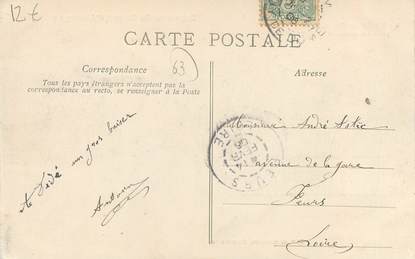 12€
CARTE POSTALE
Correspondance
63
Adresse
Tous les pays étrangers n'acceptent pas la
correspondance au recto, se renseigner à la Poste
Monsieur André Astic
avenue de la gare
Feurs
Loire
un gros baiser
Antoine
FEURS
LOIRE